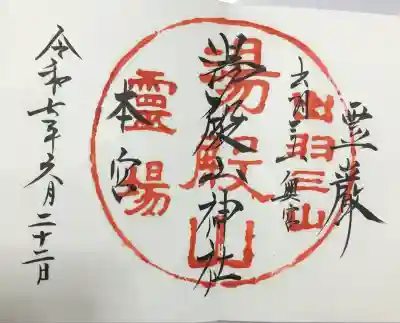 霊巌
出羽三山
奥宮
湯殿山神社
湯殿山
本宮
靈湯
令和七年六月二十二日